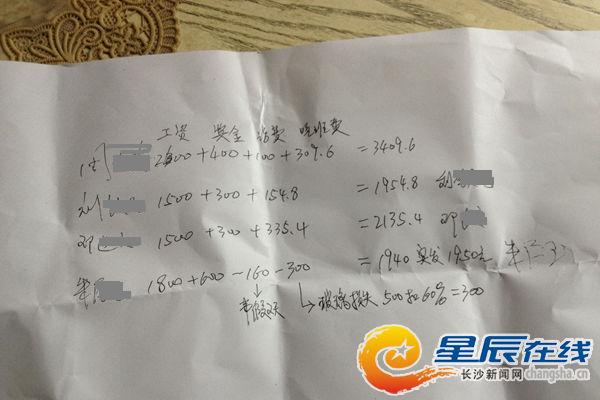 工资 奖金 话费 晚班费
周 2600+400+100+309.6 =3409.6
刘 1500+300+154.8 =1954.8 刘
邓 1500+300+335.4 =2135.4 邓
朱 1800+600-160-300 =1940 实发1950元 朱
事假2天 玻璃损失 500扣60%=300
星辰在线
长沙新闻网 changsha.cn